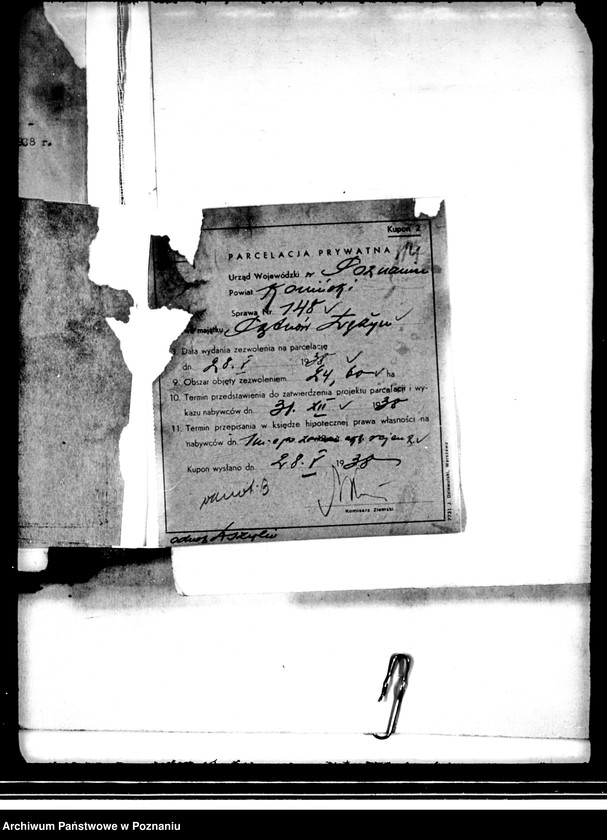 38 r.
Kupon 2
PARCELACJA PRYWATNA
Urząd Wojewódzki w Poznaniu
Powiat Koniński
Sprawa Nr. 148
majątku
8. Data wydania zezwolenia na parcelację
dn. 28. V 1938
9. Obszar objęty zezwoleniem 24,60 ha
10. Termin przedstawienia do zatwierdzenia projektu parcelacji i wy-
kazu nabywców dn. 31. XII 1938
11. Termin przepisania w księdze hipotecznej prawa własności na
nabywców dn. 1 m-c po
Kupon wysłano dn. 28. V 1938
Komisarz Ziemski
Archiwum Państwowe w Poznaniu